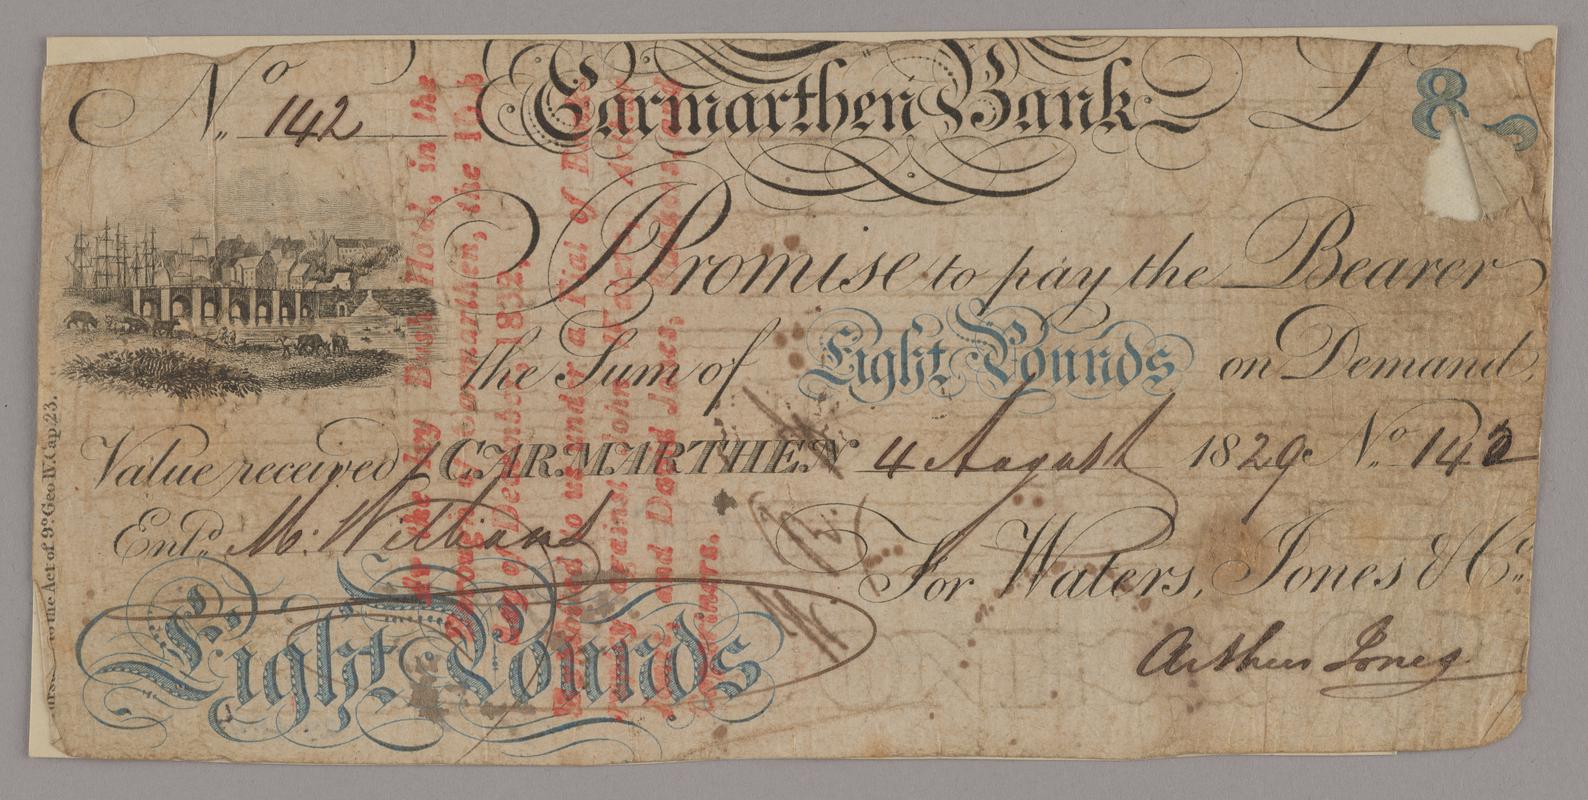 No. 142
Carmarthen Bank
£ 8
Promise to pay the Bearer
the Sum of Eight Pounds on Demand,
Value received CARMARTHEN 4 August 1829 No. 142
Entd. M: Williams
For Waters, Jones & Co.
Eight Pounds
Arthur Jones
to the Act of 9o. Geo. IV. Cap. 23.
at the Ivy Bush Hotel, in the
Borough of Carmarthen, the
of December 1832,
under a Fiat of
against John
and David Jones,